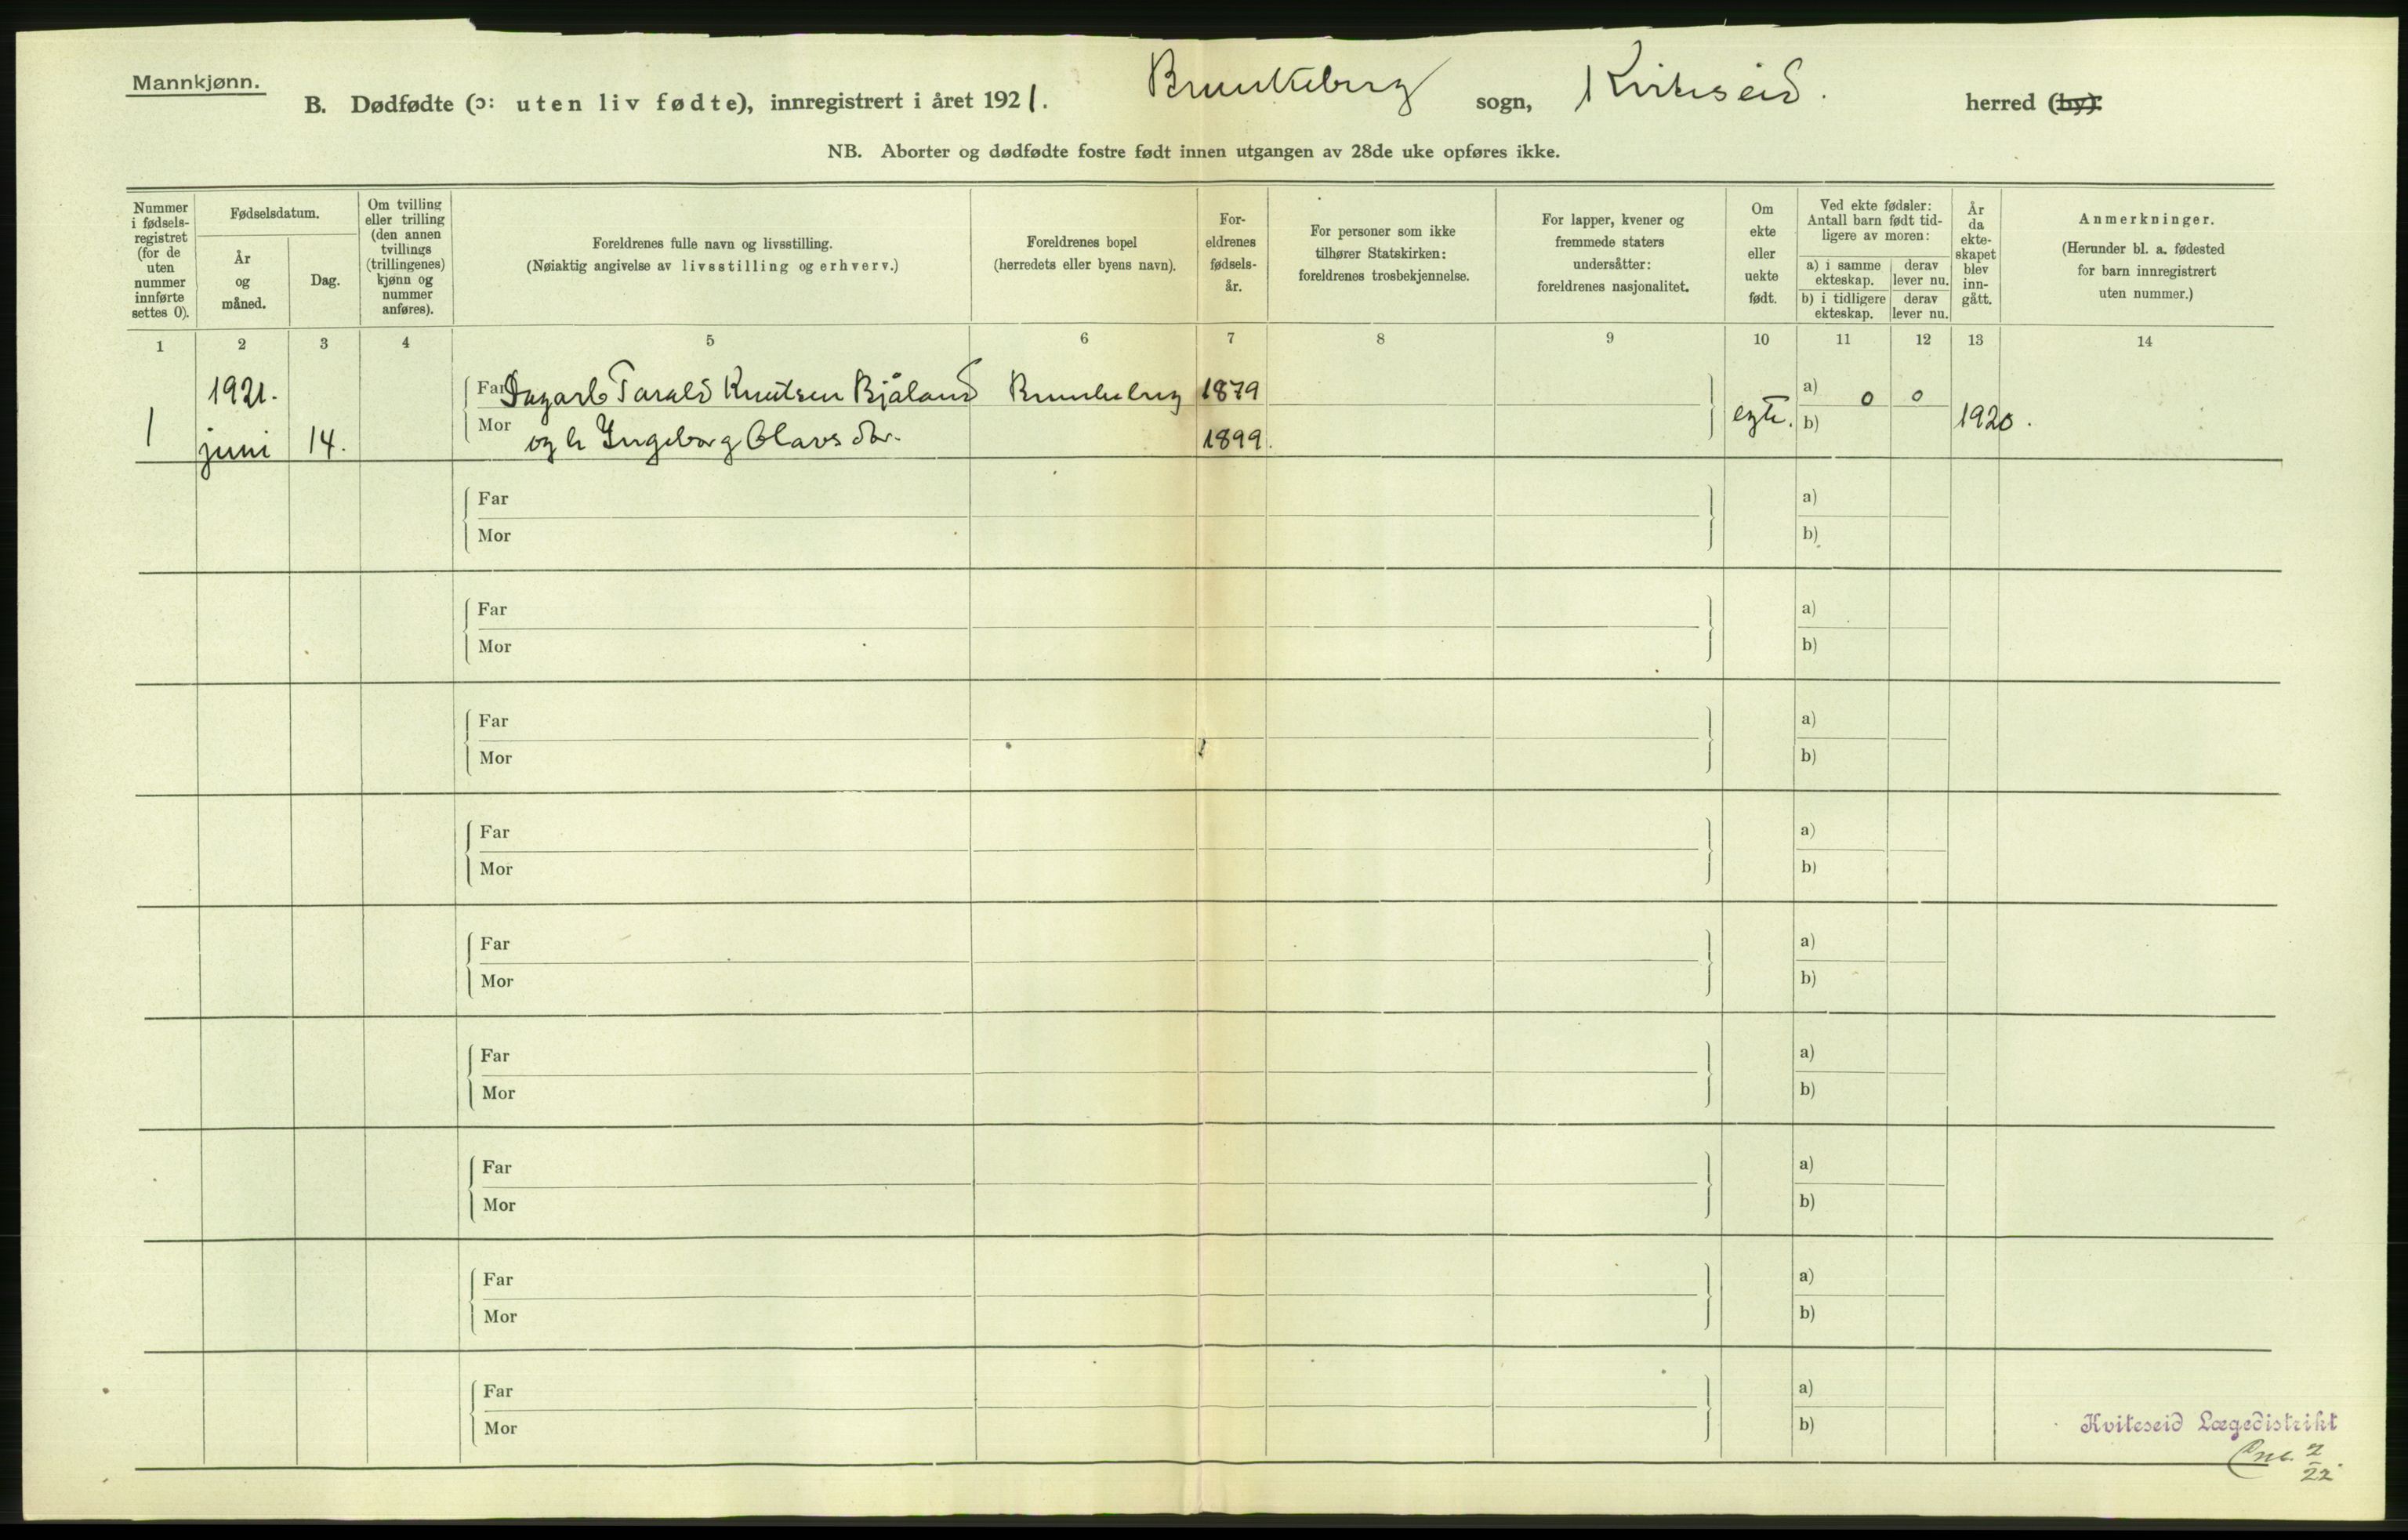 Mannkjønn.
B. Dødfødte (ɔ: uten liv fødte), innregistrert i året 1921. Brunkeberg sogn, Kviteseid. herred (by).
NB. Aborter og dødfødte fostre født innen utgangen av 28de uke opføres ikke.
Nummer
i fødsels-
registret
(for de
uten
nummer
innførte
settes 0).
Fødselsdatum.
År
og
måned.
Dag.
Om tvilling
eller trilling
(den annen
tvillings
(trillingenes)
kjønn og
nummer
anføres).
Foreldrenes fulle navn og livsstilling.
(Nøiaktig angivelse av livsstilling og erhverv.)
Foreldrenes bopel
(herredets eller byens navn).
For-
eldrenes
fødsels-
år.
For personer som ikke
tilhører Statskirken:
foreldrenes trosbekjennelse.
For lapper, kvener og
fremmede staters
undersåtter:
foreldrenes nasjonalitet.
Om
ekte
eller
uekte
født.
Ved ekte fødsler:
Antall barn født tid-
ligere av moren:
a) i samme
ekteskap.
derav
lever nu.
b) i tidligere
ekteskap.
derav
lever nu.
År
da
ekte-
skapet
blev
inn-
gått.
Anmerkninger.
(Herunder bl. a. fødested
for barn innregistrert
uten nummer.)
1 2 3 4 5 6 7 8 9 10 11 12 13 14
1921. Far Dagarb Tarald Knutsen Bjåland Brunkeberg 1879 a) 0 0
1 juni 14. Mor og h Ingeborg Olavsdtr. 1899. egte. b) 1920.
Far a)
Mor b)
Far a)
Mor b)
Far a)
Mor b)
Far a)
Mor b)
Far a)
Mor b)
Far a)
Mor b)
Far a)
Mor b)
Far a)
Mor b)
Far a)
Mor b)
Kviteseid Lægedistrikt
2
22